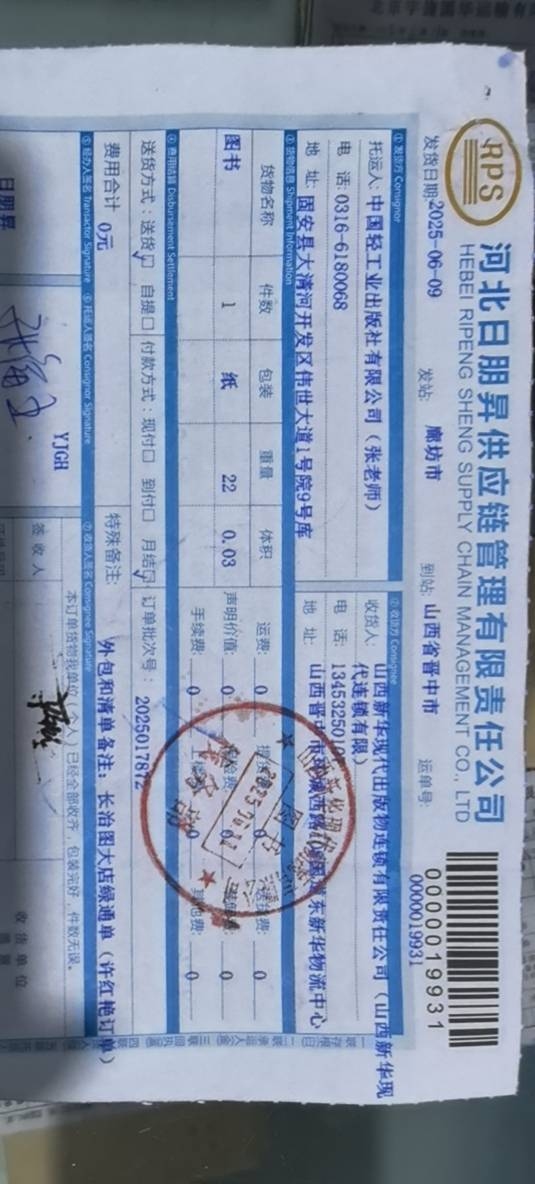 RPS
河北日朋昇供应链管理有限责任公司
HEBEI RIPENG SHENG SUPPLY CHAIN MANAGEMENT CO., LTD
0000019931
发货日期: 2025-06-09 发站: 廊坊市 到站: 山西省晋中市 运单号: 0000019931
①发货方 Consignor
托运人: 中国轻工业出版社有限公司（张老师）
电 话: 0316-6180068
地 址: 固安县大清河开发区伟世大道1号院9号库
②收货方 Consignee
收货人: 山西新华现代出版物连锁有限责任公司（山西新华现
代连锁有限）
电话:
地 址:
③货物信息 Shipment Information
货物名称 件数 包装 重量 体积
图书 1 纸 22 0.03
运费: 0
声明价值: 0
手续费: 0 0
0
0
④费用结算 Disbursement Settlement
送货方式: 送货☑ 自提□ 付款方式: 现付□ 到付□ 月结☑ 订单批次号: 2025017872
费用合计 0元 特殊备注: 外包和清单备注: 长治图大店绿通单（许红艳订单）
⑤经办人签名 Transactor Signature
⑥托运人签名 Consignor Signature
⑦收货人签名 Consignee Signature
日朋昇
YJGH
本订单货物我单位（个人）已经全部收齐, 包装完好, 件数无误。
签收人 收货单位